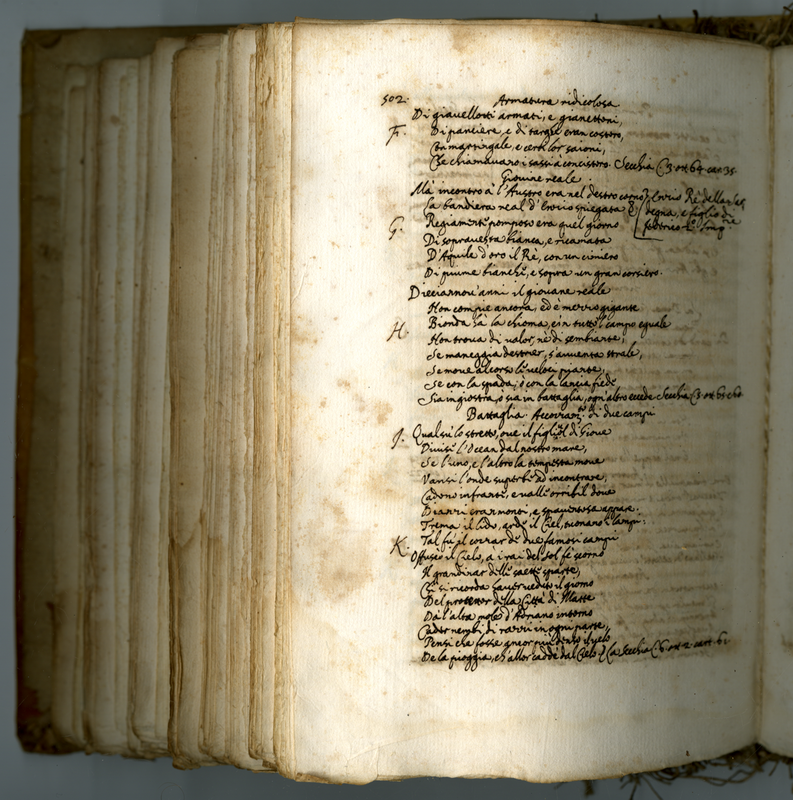 502. Armatura ridicolosa
Di giavellotti armati, e gianettoni,
F. Di panciere, e di targhe eran costoro,
Con martingale, e certi lor saioni,
Che chiamavano i sassi à concistoro. Secchia C. 3. ott. 64. car. 35.
Giovine reale.
Mà incontro à l'Austro era nel destro corno Enzio Rè della Sar
La bandiera real d'Enzio spiegata degna, e figlio di
G. Regiamente pomposo era quel giorno Federico 2.º Imp.re
Di sopravesta bianca, e ricamata
D'Aquile d'oro il Rè, con un cimiero
Di piume bianche, e sopra un gran corsiero.
Diecianov'anni il giovane reale
Non compie ancora, ed è mezzo gigante
H. Bionda hà la chioma, e in tutto'l campo eguale
Non trova di valor, nè di sembiante;
Se maneggia destrier, s'avventa strale,
Se move al corso le veloci piante,
Se con la spada, ò con la lancia fiede
Sia in giostra, o sia in battaglia, ogn'altro eccede Secchia C. 3. ott.
Battaglia. di due campi
J. Qual sù lo stretto, ove il figliol di Giove
Divise l'Ocean dal nostro mare,
Se l'uno, e l'altro la tempesta move
Vansi l'onde superbe ad incontrare,
Cadono infrante, e valle orribil dove
Dianzi eran monti, e spaventosa appare.
Trema il lido, arde il Ciel, tuonano i lampi:
Tal fù il cozzar de due famosi campi
K. Offuscò il Cielo, à i rai del sol fè scorno
Il grandinar delle saette sparte,
Chi si ricorda haver veduto il giorno
Del protettor della Città di Marte
Da l'alta mole d'Adriano intorno
Cader nembi di razzi in ogni parte,
Pensi che fosse ancor più denso il velo
De la pioggia, ch'allor cadde dal Cielo La Secchia C. 6. ott. 2. cart.